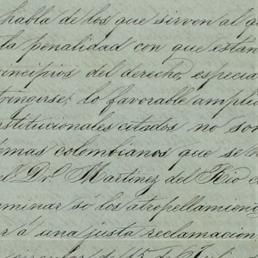 habla de los que sirven al g
la penalidad con que están
rincipios del derecho, especia
tringerse; lo favorable ampli
stitucionales citados no son
emas colombianos que se h
el Dr. Martínez del Rio e
minar so los atropellamien
er á una justa reclamacion
circular de 15 de Jul